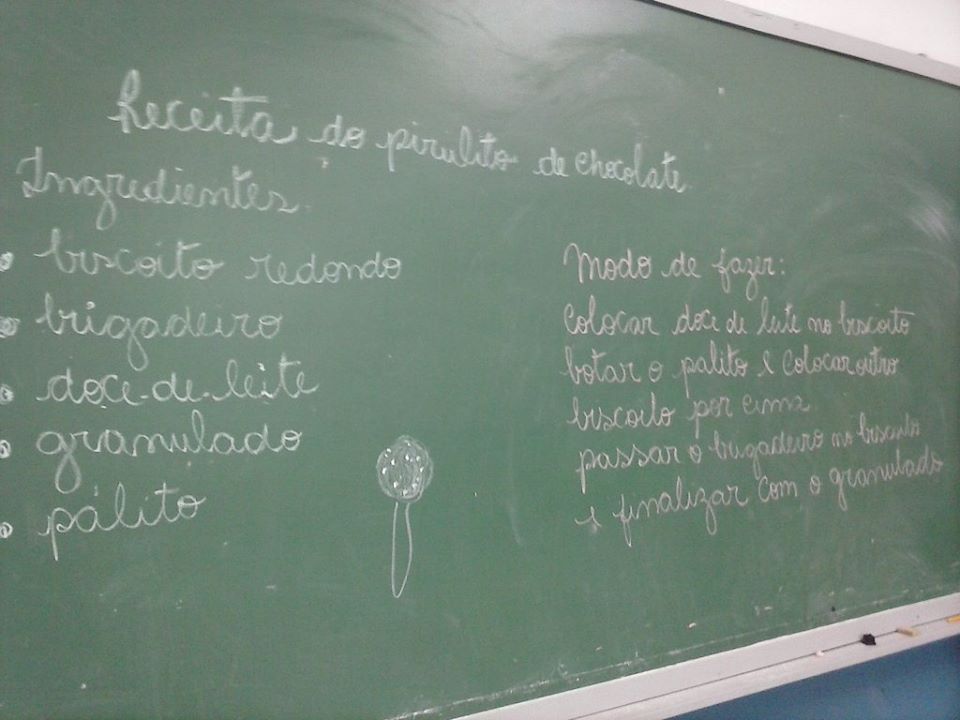 Receita do pirulito de chocolate.
Ingredientes.
biscoito redondo
brigadeiro
doce-de-leite
granulado
pálito
Modo de fazer:
Colocar doce de leite no biscoito
botar o palito e colocar outro
biscoito por cima
passar o brigadeiro no biscoito
e finalizar com o granulado